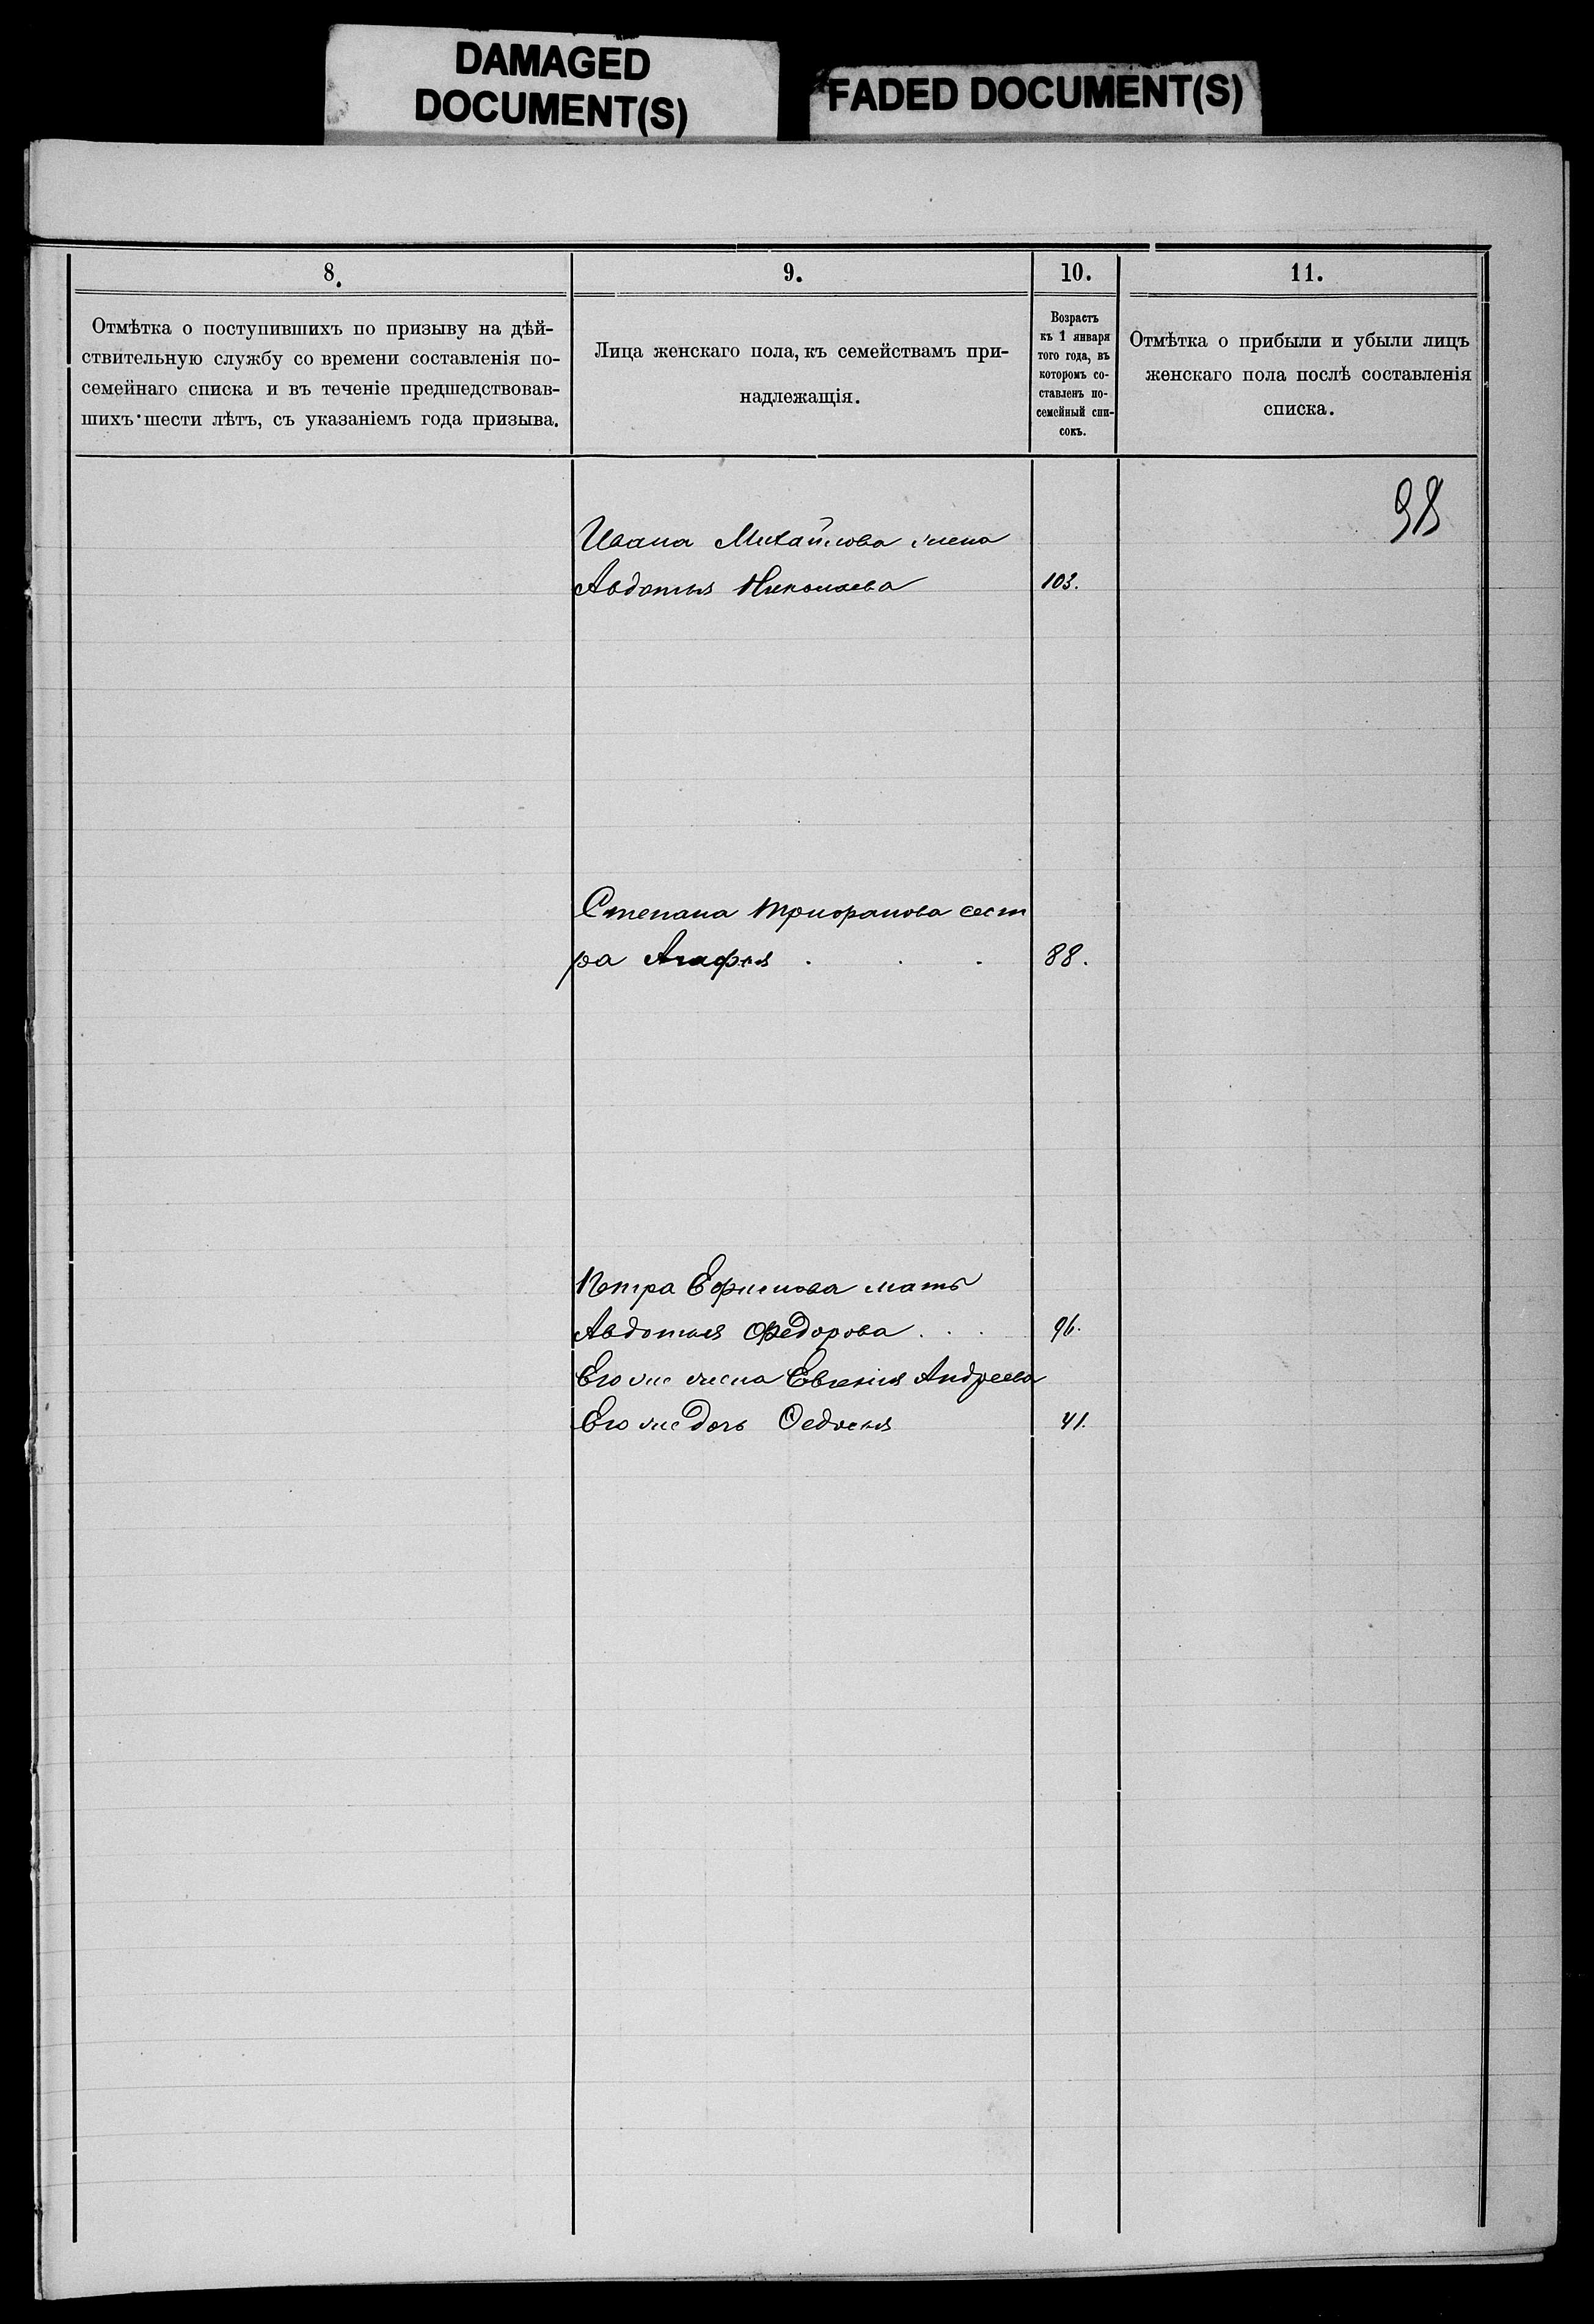 DAMAGED
DOCUMENT(S)
FADED DOCUMENT(S)
8.
9.
10.
11.
Отмѣтка о поступившихъ по призыву на дѣй-
ствительную службу со времени составленія по-
семейнаго списка и въ теченіе предшедствовав-
шихъ шести лѣтъ, съ указаніемъ года призыва.
Лица женскаго пола, къ семействамъ при-
надлежащія.
Возрастъ
къ 1 января
того года, въ
которомъ со-
ставленъ по-
семейный спи-
сокъ.
Отмѣтка о прибыли и убыли лицъ
женскаго пола послѣ составленія
списка.
98
Ивана Михайлова жена
Авдотья Николаева 103.
Степана сест
ра Агафья . . . 88.
Петра Ефимова мать
Авдотья Федорова . . . 96.
Его же жена Евгенія Андреева
Его же дочь Федосья 41.